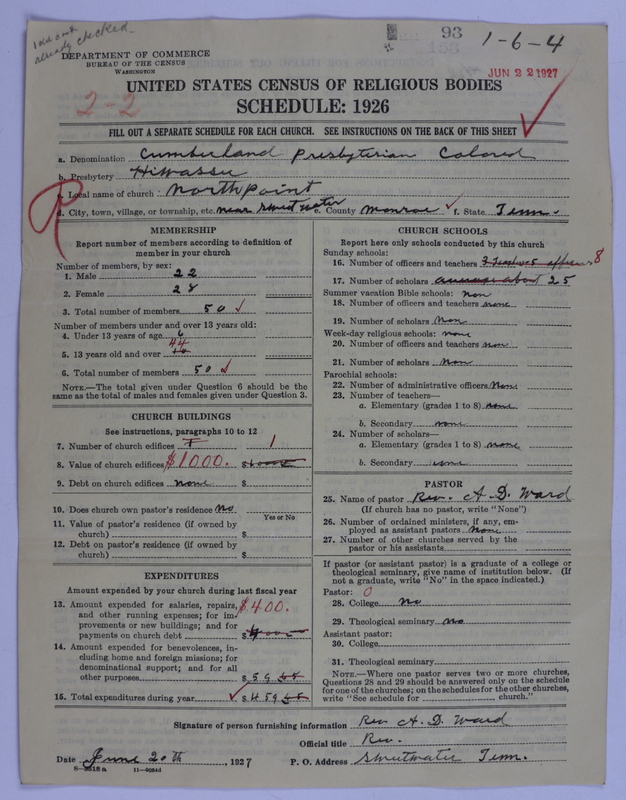 already checked.
93
1-6-4
DEPARTMENT OF COMMERCE
BUREAU OF THE CENSUS
WASHINGTON
JUN 22 1927
UNITED STATES CENSUS OF RELIGIOUS BODIES
2-2
SCHEDULE: 1926
FILL OUT A SEPARATE SCHEDULE FOR EACH CHURCH. SEE INSTRUCTIONS ON THE BACK OF THIS SHEET
a. Denomination Cumberland Presbyterian Colored
b. Presbytery Hiwassee
c. Local name of church: Northpoint
d. City, town, village, or township, etc. near Sweetwater e. County Monroe f. State Tenn.
MEMBERSHIP
Report number of members according to definition of
member in your church
Number of members, by sex:
1. Male 22
2. Female 28
3. Total number of members 50
Number of members under and over 13 years old:
4. Under 13 years of age 6
5. 13 years old and over 44
6. Total number of members 50
NOTE.—The total given under Question 6 should be the
same as the total of males and females given under Question 3.
CHURCH BUILDINGS
See instructions, paragraphs 10 to 12
7. Number of church edifices 1
8. Value of church edifices $1000. $
9. Debt on church edifices none $
10. Does church own pastor's residence No
Yes or No
11. Value of pastor's residence (if owned by
church) $
12. Debt on pastor's residence (if owned by
church) $
EXPENDITURES
Amount expended by your church during last fiscal year
13. Amount expended for salaries, repairs, $400.
and other running expenses; for im-
provements or new buildings; and for
payments on church debt $
14. Amount expended for benevolences, in-
cluding home and foreign missions; for
denominational support; and for all
other purposes $59
15. Total expenditures during year $459
CHURCH SCHOOLS
Report here only schools conducted by this church
Sunday schools:
16. Number of officers and teachers 3 Teachers 5 officers 8
17. Number of scholars 25
Summer vacation Bible schools: Non
18. Number of officers and teachers none
19. Number of scholars Non
Week-day religious schools: none
20. Number of officers and teachers non
21. Number of scholars Non
Parochial schools:
22. Number of administrative officers None
23. Number of teachers—
a. Elementary (grades 1 to 8) none
b. Secondary none
24. Number of scholars—
a. Elementary (grades 1 to 8) none
b. Secondary none
PASTOR
25. Name of pastor Rev. A. D. Ward
(If church has no pastor, write "None")
26. Number of ordained ministers, if any, em-
ployed as assistant pastors None
27. Number of other churches served by the
pastor or his assistants
If pastor (or assistant pastor) is a graduate of a college or
theological seminary, give name of institution below. (If
not a graduate, write "No" in the space indicated.)
Pastor: 0
28. College No
29. Theological seminary no
Assistant pastor:
30. College
31. Theological seminary
NOTE.—Where one pastor serves two or more churches,
Questions 28 and 29 should be answered only on the schedule
for one of the churches; on the schedules for the other churches,
write "See schedule for church."
Signature of person furnishing information Rev A. D. Ward
Official title Rev.
Date June 20th, 1927 P. O. Address Sweetwater Tenn.
8—5518a 11—9034d